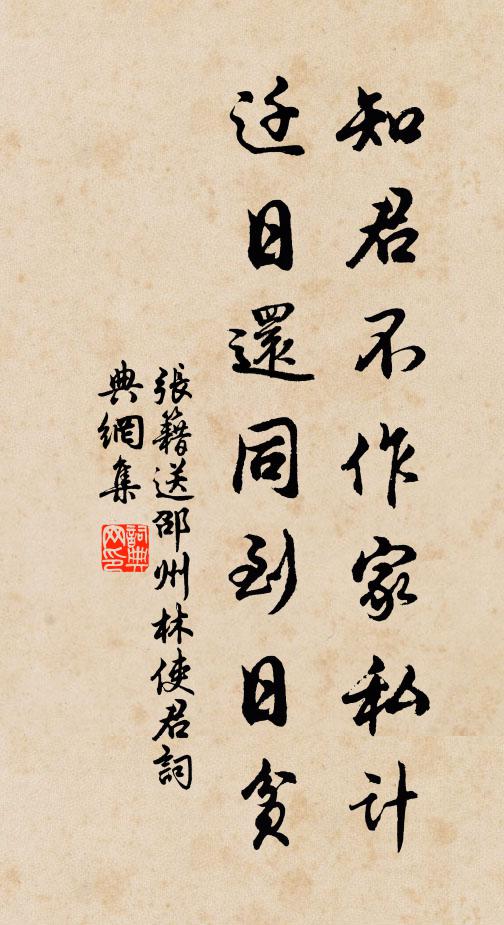 知君不作家私計
迁日還同到日貧
張籍送邵州林使君詞
典網集
詞典
网印